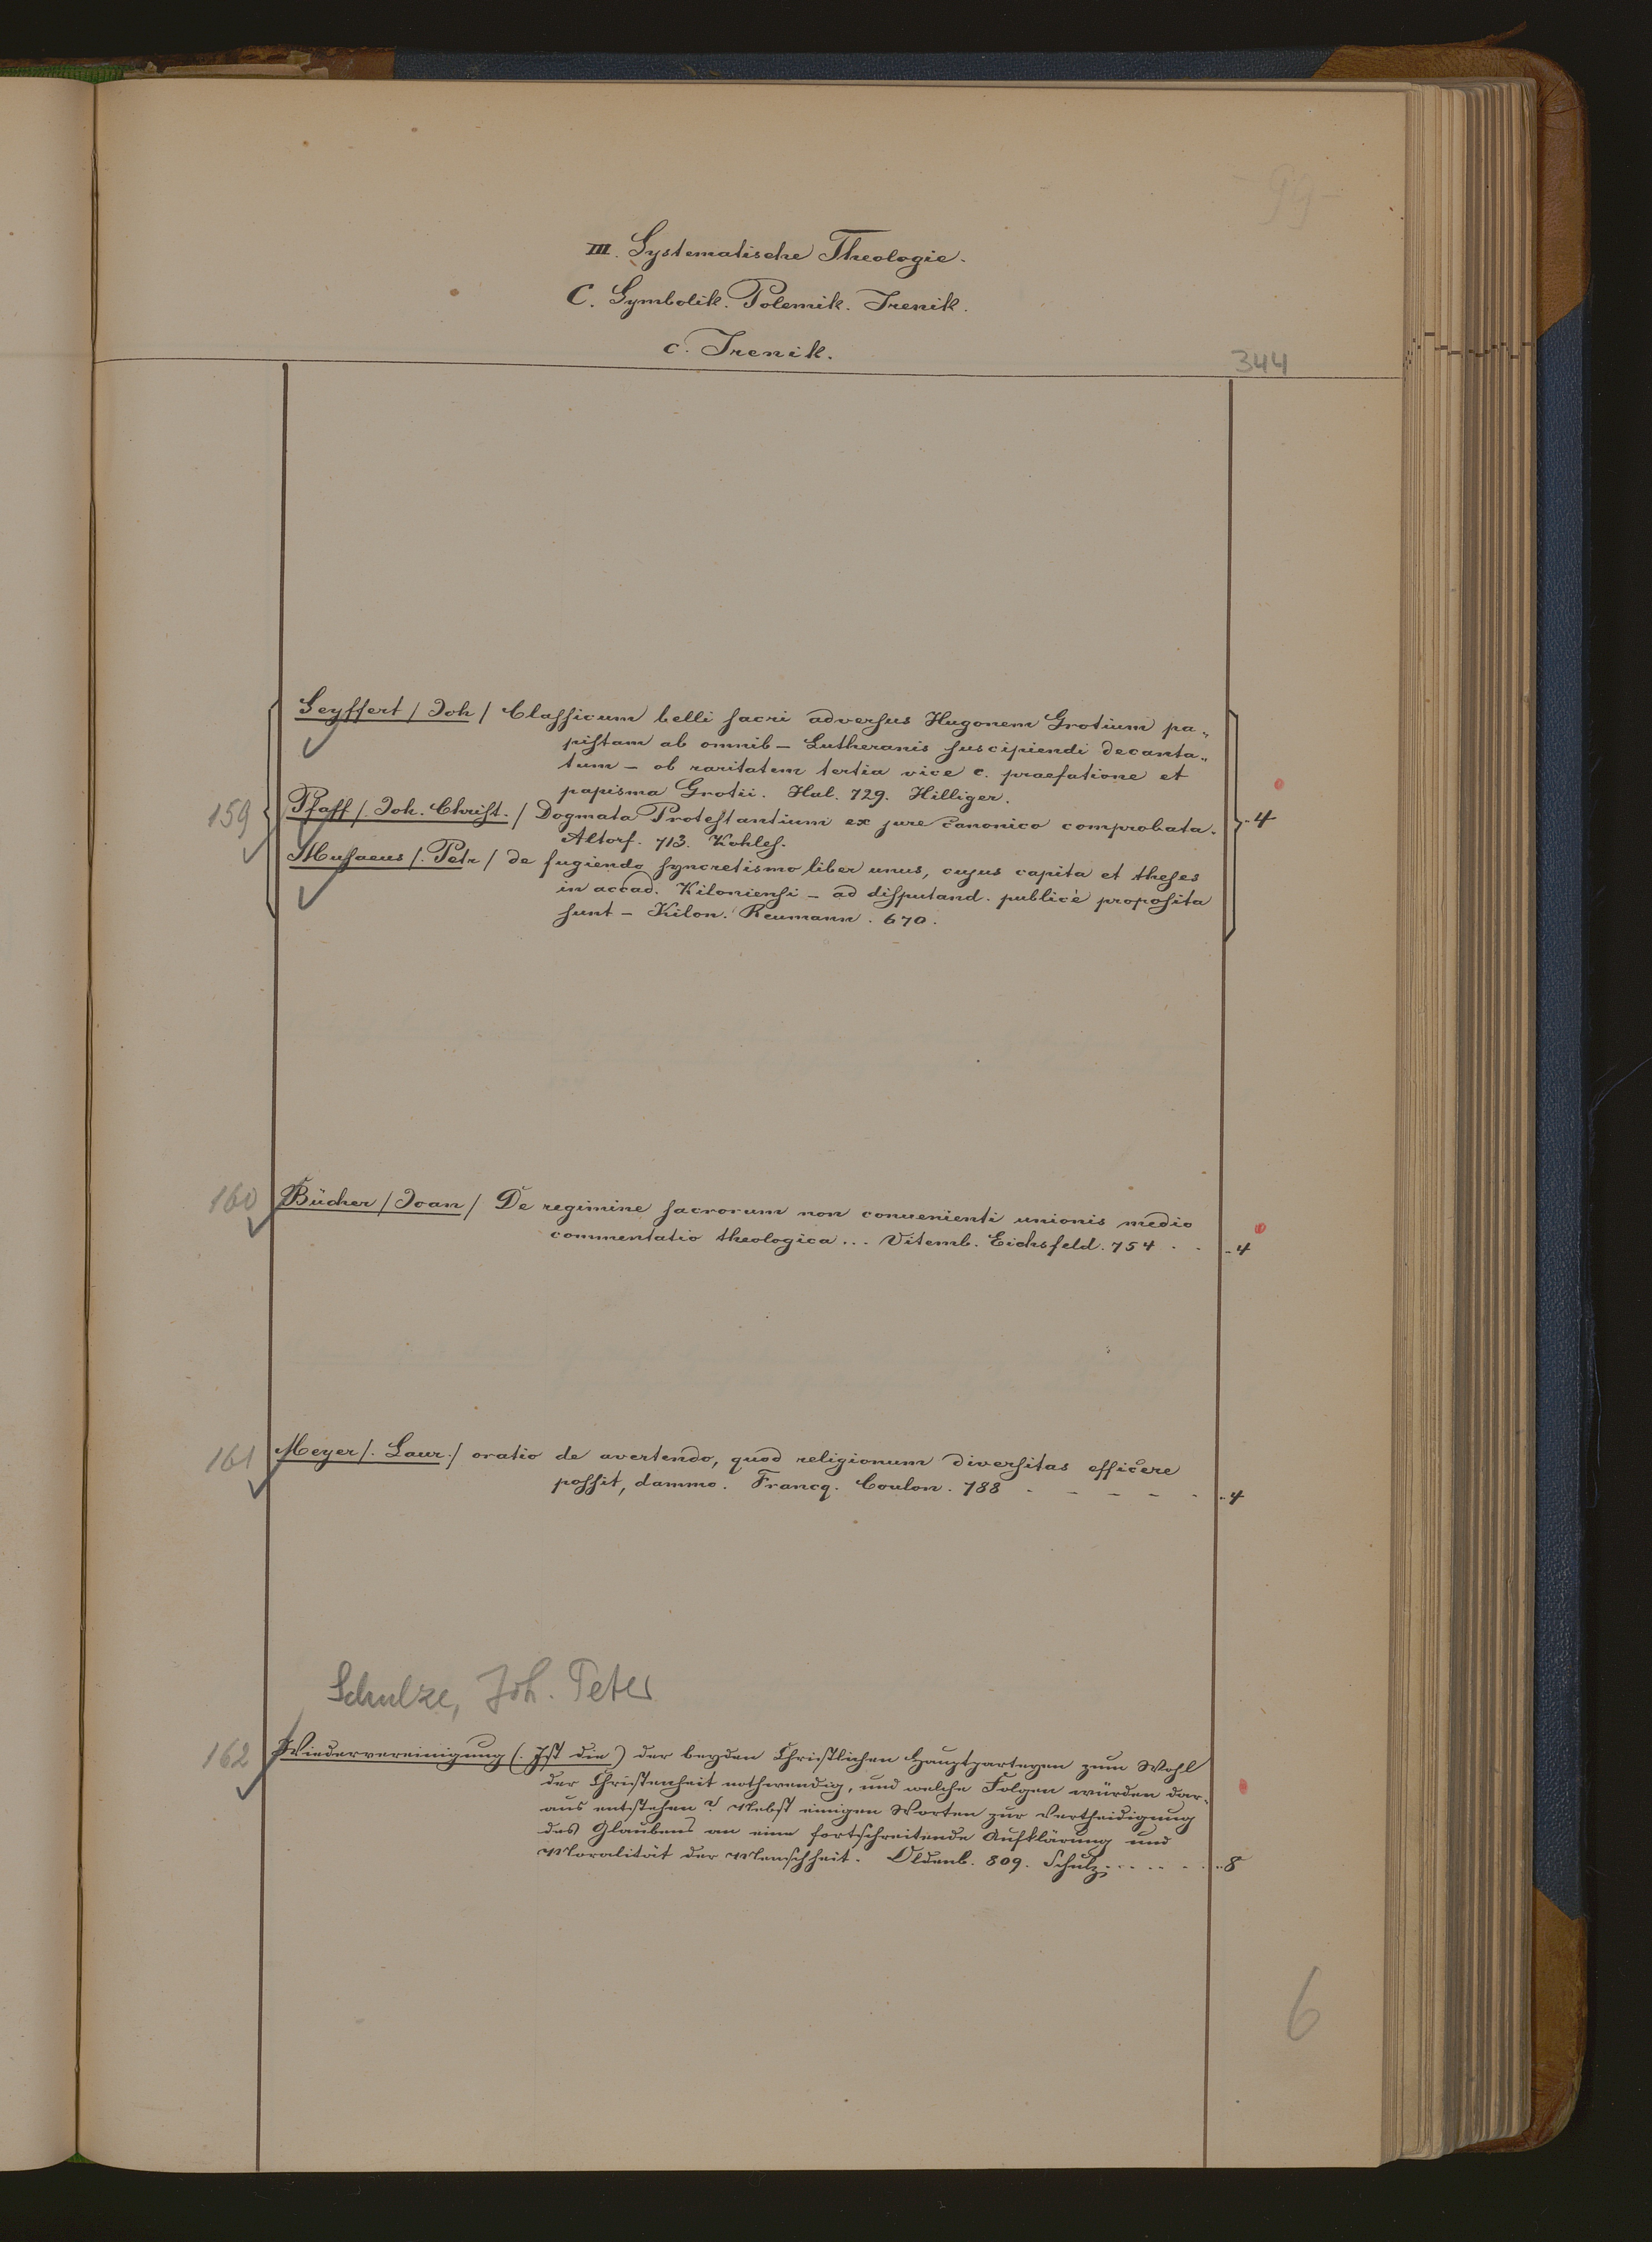 III. Systematische Theologie.
C. Symbolik. Polemik. Irenik.
c. Irenik.
344
Seyffert / Joh / Classicum belli sacri adversus Hugonem Grotium pa„
pistam ab omnib – Lutheranis suscipiendi decanta„
tum – ob raritatem tertia vice c. praefatione et
papisma Grotii. Hal. 729. Hilliger.
159 Pfaff /. Joh. Christ. / Dogmata Protestantium ex jure canonico comprobata. -4
Altorf. 713. Kohles.
Musaeus /. Petr / de fugiendo syncretismo liber unus, cujus capita et theses
in accad. Kiloniensi – ad disputand. publicè proposita
sunt – Kilon. Reumann. 670.
160 Bücher / Joan / De regimine sacrorum non convenienti unionis medio
commentatio theologica ... Vitemb. Eichsfeld. 754 . . -4
161 Meyer /. Laur. / oratio de avertendo, quod religionum diversitas efficere
possit, damno. Francq. Coulon. 788 - - - - - -4
Schulze, Joh. Peter
162 Wiedervereinigung (. Ist die ) der beyden Christlichen Hauptparteyen zum Wohl
der Christenheit nothwendig, und welche Folgen würden dar-
aus entstehen? Nebst einigen Worten zur Vertheidigung
des Glaubens an eine fortschreitende Aufklärung und
Moralität der Menschheit. Oldenb. 809. Schulz . . . . . . -8
6